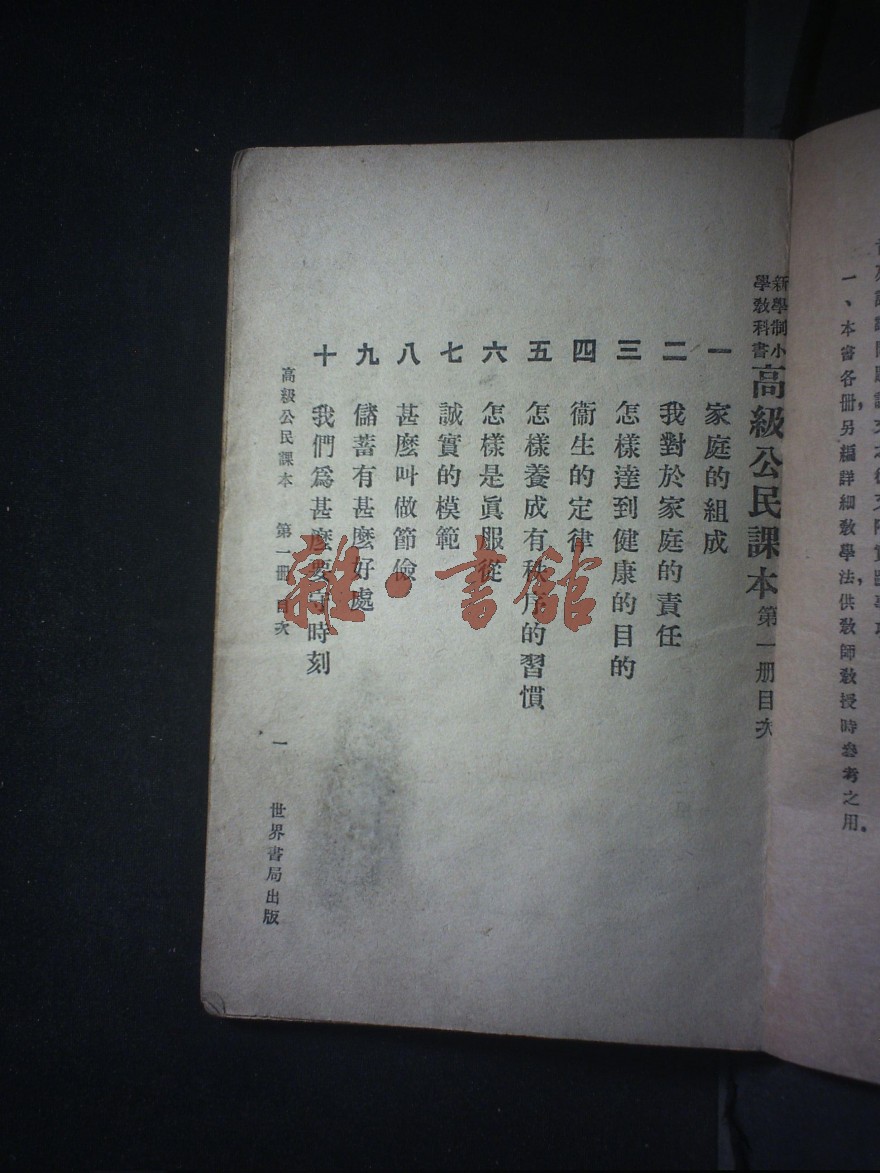 一、本書各册另編詳細敎學法，供敎師敎授時參考之用。
新學制小學敎科書高級公民課本第一册目次
一 家庭的組成
二 我對於家庭的責任
三 怎樣達到健康的目的
四 衞生的定律
五 怎樣養成有秩序的習慣
六 怎樣是眞服從
七 誠實的模範
八 甚麼叫做節儉
九 儲蓄有甚麼好處
十 我們爲甚麼要守時刻
高級公民課本 第一册 目次 一 世界書局出版
雜·書館